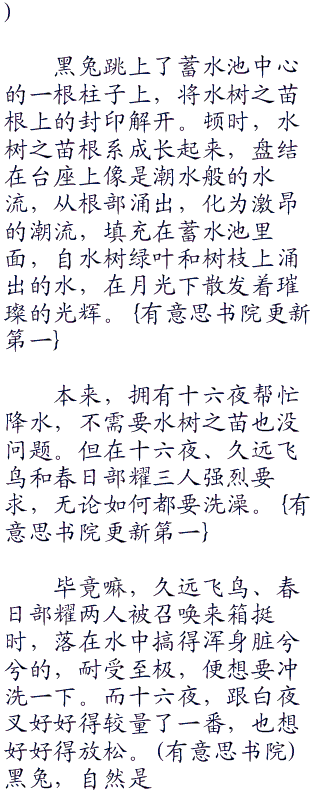 )
黑兔跳上了蓄水池中心
的一根柱子上，将水树之苗
根上的封印解开。顿时，水
树之苗根系成长起来，盘结
在台座上像是潮水般的水
流，从根部涌出，化为激昂
的潮流，填充在蓄水池里
面，自水树绿叶和树枝上涌
出的水，在月光下散发着璀
璨的光辉。{有意思书院更新
第一}
本来，拥有十六夜帮忙
降水，不需要水树之苗也没
问题。但在十六夜、久远飞
鸟和春日部耀三人强烈要
求，无论如何都要洗澡。{有
意思书院更新第一}
毕竟嘛，久远飞鸟、春
日部耀两人被召唤来箱挺
时，落在水中搞得浑身脏兮
兮的，耐受至极，便想要冲
洗一下。而十六夜，跟白夜
叉好好得较量了一番，也想
好好得放松。(有意思书院)
黑兔，自然是